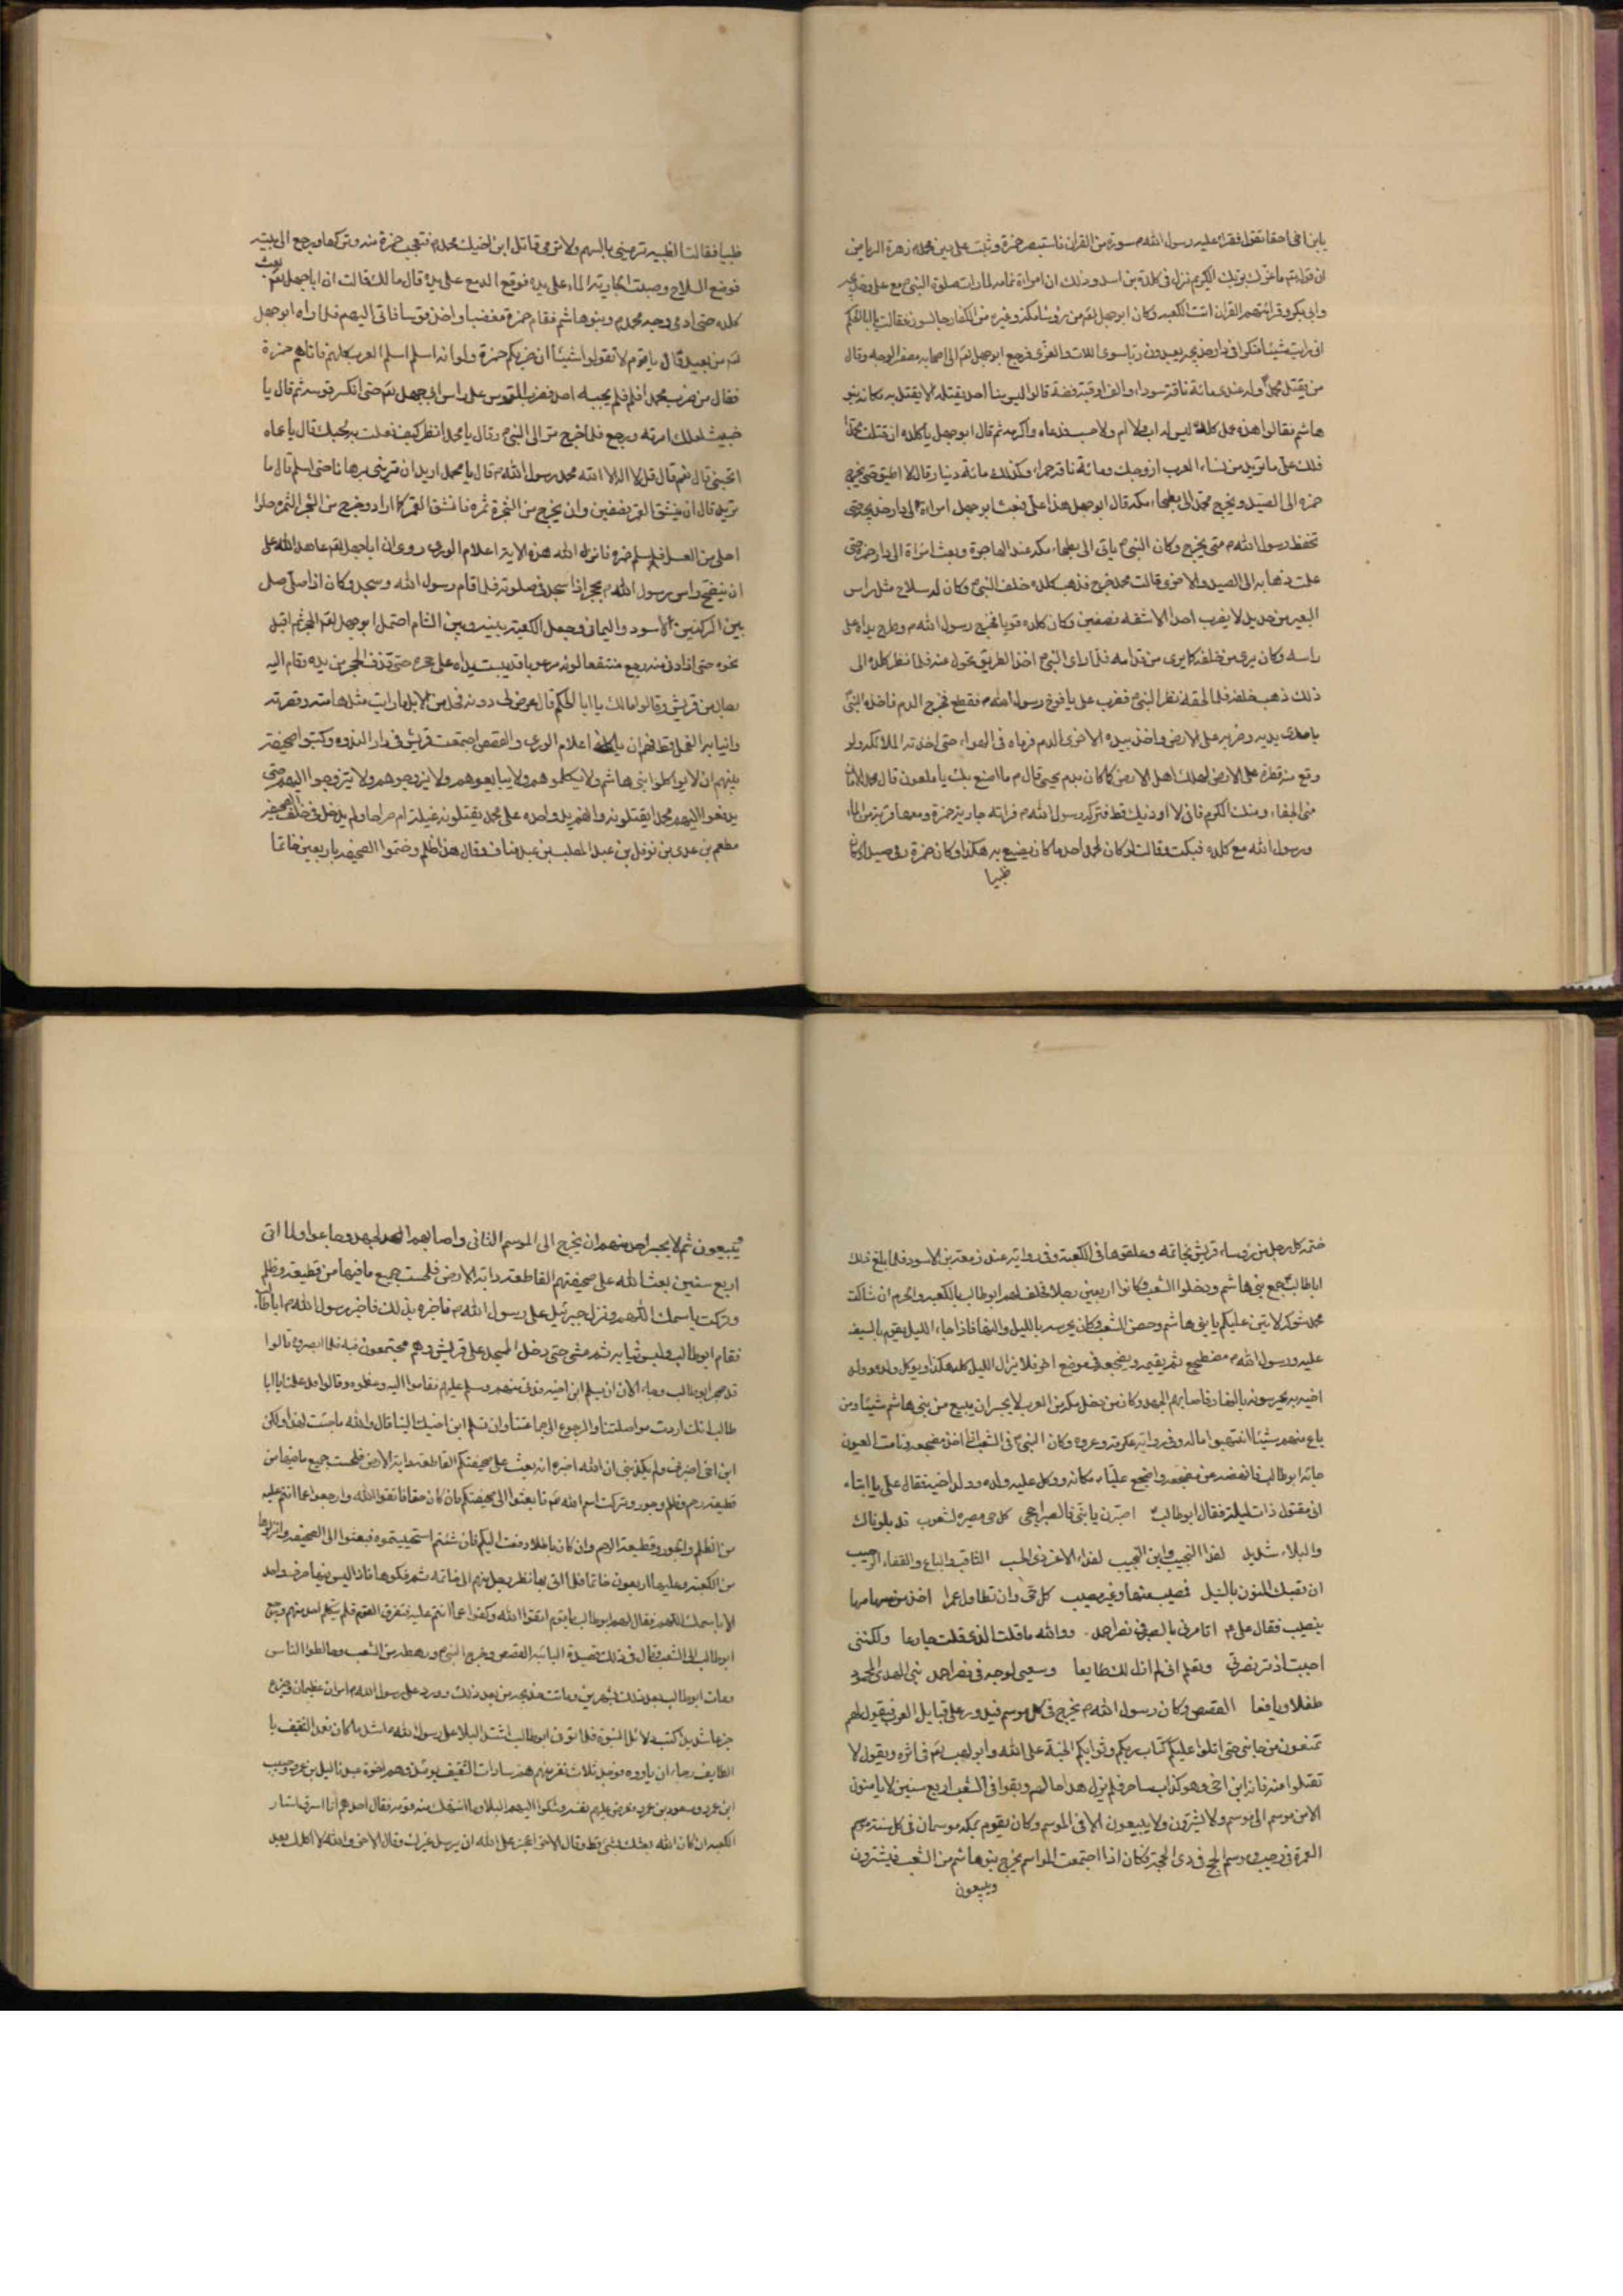 يابن اخي احقا تقول فقرا عليه رسول الله م سورة من القران فاستبصر حمزة وثبت على دين محمد م زهرة الرياض
ان قوله تع ما غرك بربك الكريم نزل في كلدة بن اسد وذلك ان امراة تمامه لما رات صلوة النبي م مع علي وخديجه
وابي بكر وقرائتهم القران اتت الكعبه وكان ابو جهل لعم من رؤساء مكه وغيره من الكفار جالسون فقالت يا ابا الحكم
اني رايت شيئا منكرا في دار خديجه يعبدون ربا سوى اللات والعزى فرجع ابو جهل لعم الى اصحابه مصفر الوجه وقال
من يقتل محمدا وله عندي مائة ناقة سوداء والف اوقية فضة قالوا ليس بنا احد يقتله لا يقتل به مكانه بنو
هاشم فقالوا هذه عمل كلده ليس له اب ولا ام ولا حسب فدعاه واكرمه ثم قال ابو جهل يا كلده ان قتلت محمدا
فلك علي ما تريد من نساء العرب ازوجك ومائة ناقه حمراء وكذلك مائة دينار قال لا اطيق حتى يخرج
حمزه الى الصيد ويخرج محمد الى بطحاء مكه قال ابو جهل هذا علي فبعث ابو جهل امراة الى دار خديجه حتى
تحفظ رسول الله م متى يخرج وكان النبي م ياتي الى بطحاء مكه عند الهاجرة وبعث امراة الى دار حمزه حتى
علمت ذهابه الى الصيد والاخرى قالت محمد خرج فذهب كلده خلف النبي م وكان له سلاح مثل راس
البعير من حديد لا يضرب احدا الا شقه نصفين وكان كلده قويا فخرج رسول الله م وطرح رداه على
راسه وكان يرى من خلفه كما يرى من قدامه فلما راى النبي م اخذ الطريق تحول عنه فلما نظر كلده الى
ذلك ذهب خلفه فلما لحقه نظر النبي م فضرب على يافوخ رسول الله م فقطع فخرج الدم فاخذه النبي
باحدى يديه وضربه على الارض واخذ بيده الاخرى الدم فرماه في الهواء حتى اخذته الملائكه ولو
وقع منه قطرة على الارض لهلك اهل الارض كما كان بدم يحيى قال م ما اصنع بك يا ملعون قال محمد الامان
مني الجفاء ومنك الكرم فاني لا اوذيك قط فتركه رسول الله م فراته جارية حمزة ومعها قربة من الماء
ورسول الله مع كلده فبكت وقالت لو كان لمحمد احد ما كان يصنع به هكذا وكان حمزة في صيد
ظبيا
ظبيا فقالت الظبيه ترميني بالسهم ولا ترمي قاتل ابن اخيك محمد م فتعجب حمزة منه وتركها ورجع الى بيته
فوضع السلاح وصبت الجارية الماء على يده فوقع الدمع على يده قال ما لك قالت ان ابا جهل لعم بعث
كلده حتى ادمى وجه محمد م وبنو هاشم فقام حمزة مغضبا واخذ قوسا فاتى اليهم فلما راه ابو جهل
لعم من بعيد قال يا قوم لا تقولوا شيئا ان ضربكم حمزة ولو انه اسلم اسلم العرب كلهم فاتاهم حمزة
فقال من ضرب محمدا فلم يجبه احد فضرب القوس على راس ابي جهل لعم حتى انكسر قوسه ثم قال يا
خبيث امرته ورجع فلما خرج مر الى النبي م وقال يا محمد انظر كيف فعلت بحبك قال يا عماه
اتحبني قال نعم قال قل لا اله الا الله محمد رسول الله م قال يا محمد اريد ان تريني برهانا حتى اسلم قال ما
تريد قال ان ينشق القمر نصفين وان يخرج من الشجرة ثمره فانشق القمر كما اراد وخرج من الشجر الثمره حلوا
احلى من العسل فاسلم حمزه فانزل الله هذه الاية اعلام الورى روى ان ابا جهل لعم عاهد الله على
ان يفضح راس رسول الله م بحجر اذا سجد في صلوته فلما قام رسول الله وسجد وكان اذا صلى صلى
بين الركنين الاسود واليماني وجعل الكعبة بينه وبين الشام احتمل ابو جهل لعم الحجر ثم اقبل
نحوه حتى اذا دنى منه رجع منتقعا لونه مرعوبا قد يبست يداه على حجره حتى قذف الحجر من يده وقام اليه
رجال من قريش وقالوا ما لك يا ابا الحكم قال عرض لي دونه فحل من الابل ما رايت مثل هامته وقصرته
وانيابه الفحل قط فهم ان ياكلني اعلام الورى والقصص اجتمعت قريش في دار الندوه وكتبوا صحيفة
بينهم ان لا يواكلوا بني هاشم ولا يكلموهم ولا يبايعوهم ولا يزوجوهم ولا يتزوجوا اليهم حتى
يدفعوا اليهم محمدا يقتلونه وانهم يد واحده على محمد يقتلونه غيلة ام صراحا ولم يدخل في ذلك الصحيفه
مطعم بن عدي بن نوفل بن عبد المطلب بن عبد مناف وقال هذا ظلم وختموا الصحيفه باربعين خاتما
ختمه كل رجل من رؤساء قريش بخاتمه وعلقوها في الكعبة وفي رواية عند زمعه بن الاسود فلما بلغ ذلك
ابا طالب جمع بني هاشم ودخلوا الشعب وكانوا اربعين رجلا فحلف لهم ابو طالب بالكعبه والحرم ان شاكت
محمد شوكه لاتين عليكم يا بني هاشم وحصن الشعب وكان يحرسه بالليل والنهار فاذا جاء الليل يقوم بالسيف
عليه ورسول الله م مضطجع ثم يقيمه ويضجعه في موضع اخر فلا يزال الليل كله هكذا ويوكل ولده وولد
اخيه به يحرسونه بالنهار فاصابهم الجهد وكان من دخل مكه من العرب لا يجسر ان يبيع من بني هاشم شيئا ومن
باع منهم شيئا انتهبوا ماله وفي رواية عكرمة وعروه وكان النبي م في الشعب اذا اخذ مضجعه ونامت العيون
جائه ابو طالب فانهضه عن مضجعه واضجع عليا م مكانه ووكل عليه ولده وولد اخيه فقال علي يا ابتاه
اني مقتول ذات ليلة فقال ابو طالب اصبرن يا بني فالصبر احجى كل حي مصيره لشعوب قد بلوناك
والبلاء شديد لفداء النجيب وابن النجيب لفداء الاغر ذي الحسب الثاقب والباع والفناء الرحيب
ان تصبك المنون بالنبل فمصيب منها وغير مصيب كل حي وان تطاول عمرا اخذ من سهامها
بنصيب فقال علي م اتامرني بالصبر في نصر احمد ووالله ما قلت الذي قلت جازعا ولكنني
احببت ان تر نصرتي وتعلم اني لم ازل لك طايعا وسعيي لوجه في نصر احمد نبي الهدى المحمود
طفلا ويافعا القصص وكان رسول الله م يخرج في كل موسم فيدور على قبايل العرب فيقول لهم
تمنعون من جانبي حتى اتلو عليكم كتاب ربكم وثوابكم الجنة على الله وابو لهب لعم في اثره ويقول لا
تقبلوا منه فانه ابن اخي وهو كذاب ساحر فلم يزل هذا حالهم وبقوا في الشعب اربع سنين لا يامنون
الا من موسم الى موسم ولا يشترون ولا يبيعون الا في الموسم وكان يقوم بمكه موسمان في كل سنة موسم
العمرة في رجب وموسم الحج في ذي الحجة فكان اذا اجتمعت المواسم يخرج بنو هاشم من الشعب فيشترون
ويبيعون
ويبيعون ثم لا يجسر احد منهم ان يخرج الى الموسم الثاني واصابهم الجهد وجاعوا ولما اتى
اربع سنين بعث الله على صحيفتهم القاطعة دابة الارض فلحست جميع ما فيها من قطيعة وظلم
وتركت باسمك اللهم ونزل جبرئيل على رسول الله م فاخبره بذلك فاخبر رسول الله م ابا طالب
فقام ابو طالب ولبس ثيابه ثم مشى حتى دخل المسجد على قريش وهم مجتمعون فيه فلما ابصروه قالوا
قد ضجر ابو طالب وجاء الان ان يسلم ابن اخيه فدنى منهم وسلم عليهم فقاموا اليه وعظموه وقالوا قد علمنا يا ابا
طالب انك اردت مواصلتنا والرجوع الى جماعتنا وان تسلم ابن اخيك الينا قال والله ما جئت لهذا ولكن
ابن اخي اخبرني ولم يكذبني ان الله اخبره انه بعث على صحيفتكم القاطعة دابة الارض فلحست جميع ما فيها من
قطيعة رحم وظلم وجور وتركت اسم الله عم فابعثوا الى صحيفتكم فان كان حقا فاتقوا الله وارجعوا عما انتم عليه
من الظلم والجور وقطيعة الرحم وان كان باطلا دفعت اليكم فان شئتم استحييتموه فبعثوا الى الصحيفه وانزلوها
من الكعبة وعليها اربعون خاتما فلما اتي بها نظر كل رجل منهم الى خاتمه ثم فكوها فاذا ليس فيها حرف واحد
الا باسمك اللهم فقال لهم ابو طالب يا قوم اتقوا الله وكفوا عما انتم عليه فتفرق القوم فلم يتكلم احد منهم ورجع
ابو طالب الى الشعب وقال في ذلك قصيدة البائية القصص وخرج النبي م ورهطه من الشعب وخالطوا الناس
ومات ابو طالب بعد ذلك بشهرين وماتت خديجه من بعد ذلك وورد على رسول الله م امران عظيمان وجزع
جزعا شديدا كتب دلائل النبوة فلما توفى ابو طالب اشتد البلا على رسول الله م اشد ما كان فعمد لثقيف با
الطايف رجاء ان ياووه فوجد ثلاث نفر منهم هم سادات الثقيف يومئذ وهم اخوة عبد ياليل بن عمرو وحبيب
ابن عمرو ومسعود بن عمرو فعرض عليهم نفسه وشكوا اليهم البلاء وما انتهك منه قومه فقال احدهم انا اسرق استار
الكعبه ان كان الله بعثك بشئ قط وقال الاخر اعجز على الله ان يرسل غيرك وقال الاخر والله لا اكلمك بعد